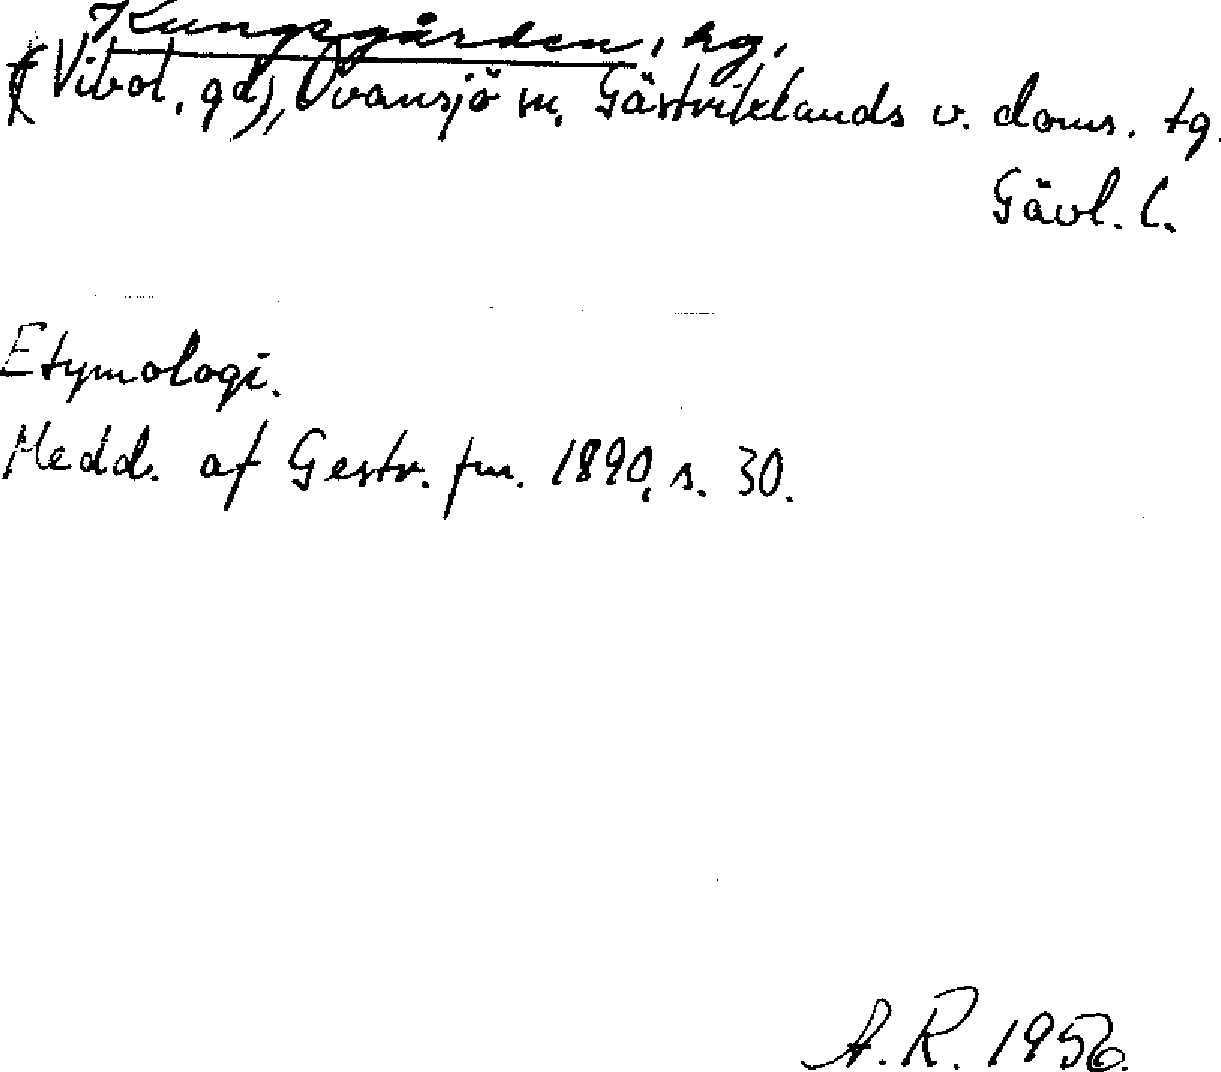 Kungsgården, hg,
(Vibol, gd), Ovansjö sn, Gästriklands v. doms. tg.
Gävl. l.
Etymologi.
Medd. af Gestr. fm. 1890, s. 30.
A. R. 1956.